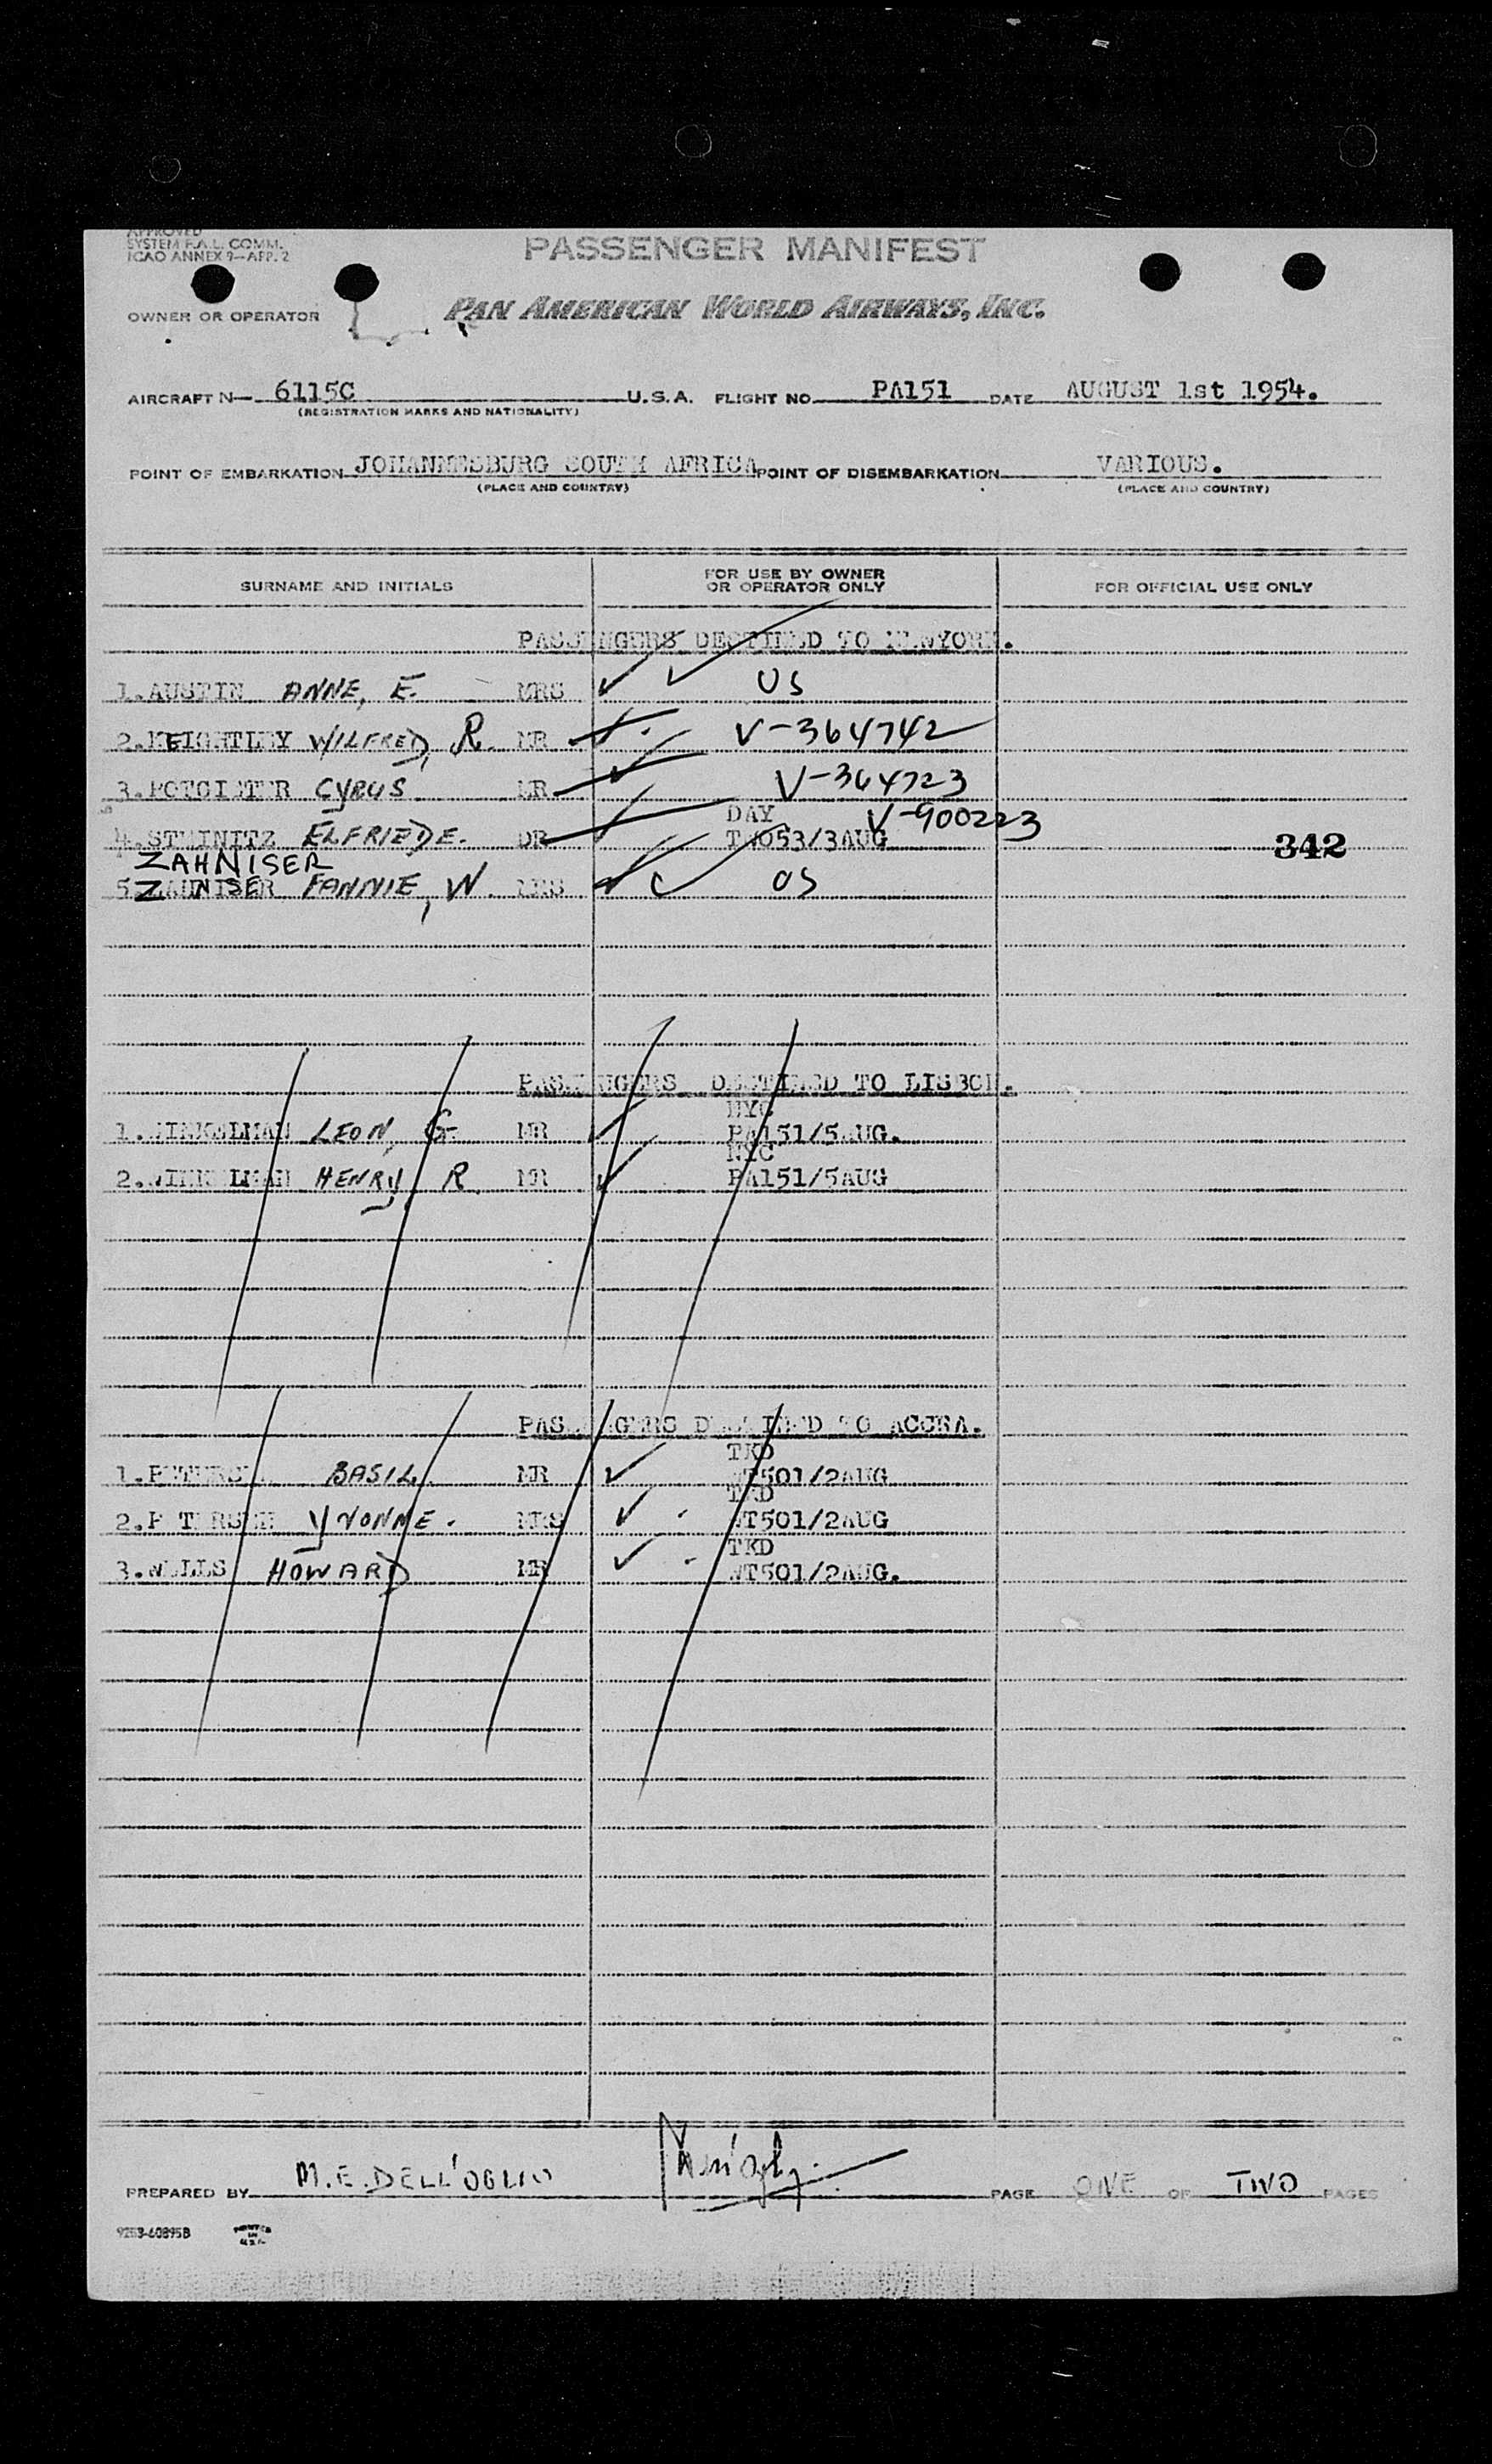 APPROVED
SYSTEM F.A.L. COMM.
ICAO ANNEX 9—APP. 2
PASSENGER MANIFEST
OWNER OR OPERATOR PAN AMERICAN WORLD AIRWAYS, INC.
AIRCRAFT N— 6115C U.S.A. FLIGHT NO. PA151 DATE AUGUST 1st 1954.
(REGISTRATION MARKS AND NATIONALITY)
POINT OF EMBARKATION JOHANNESBURG SOUTH AFRICA POINT OF DISEMBARKATION VARIOUS.
(PLACE AND COUNTRY) (PLACE AND COUNTRY)
SURNAME AND INITIALS FOR USE BY OWNER OR OPERATOR ONLY FOR OFFICIAL USE ONLY
PASSENGERS DESTINED TO NEWYORK.
1. AUSTIN ANNE, E. MRS US
2. KEIGHTLEY WILFRED, R. MR V-364742
3. POTGIETER CYRUS MR V-364723
DAY V-900223
4. STEINITZ ELFRIEDE. DR TW053/3AUG 342
ZAHNISER
5. ZAHNISER FANNIE, W. MRS US
PASSENGERS DESTINED TO LISBON.
NYC
1. WINKELMAN LEON, G. MR PA151/5AUG.
NYC
2. WINKELMAN HENRY, R. MR PA151/5AUG
PASSENGERS DESTINED TO ACCRA.
TKD
1. PETERSEN BASIL. MR WT501/2AUG
TKD
2. PETERSEN YVONNE. MRS WT501/2AUG
TKD
3. WELLS HOWARD MR WT501/2AUG.
PREPARED BY M.E. DELL'OGLIO PAGE ONE OF TWO PAGES
9253-60895B PRINTED IN U.S.A.